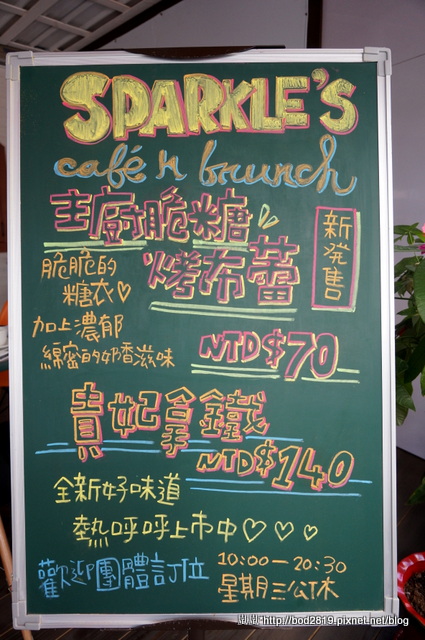 SPARKLE'S
café n brunch
主廚脆糖
烤布蕾
新発售
脆脆的
糖衣♡
加上濃郁
綿密的奶香滋味
NTD$70
貴妃拿鐵
NTD$140
全新好味道
熱呼呼上市中♡♡♡
歡迎團體訂位
10:00-20:30
星期三公休
http://bod2819.pixnet.net/blog